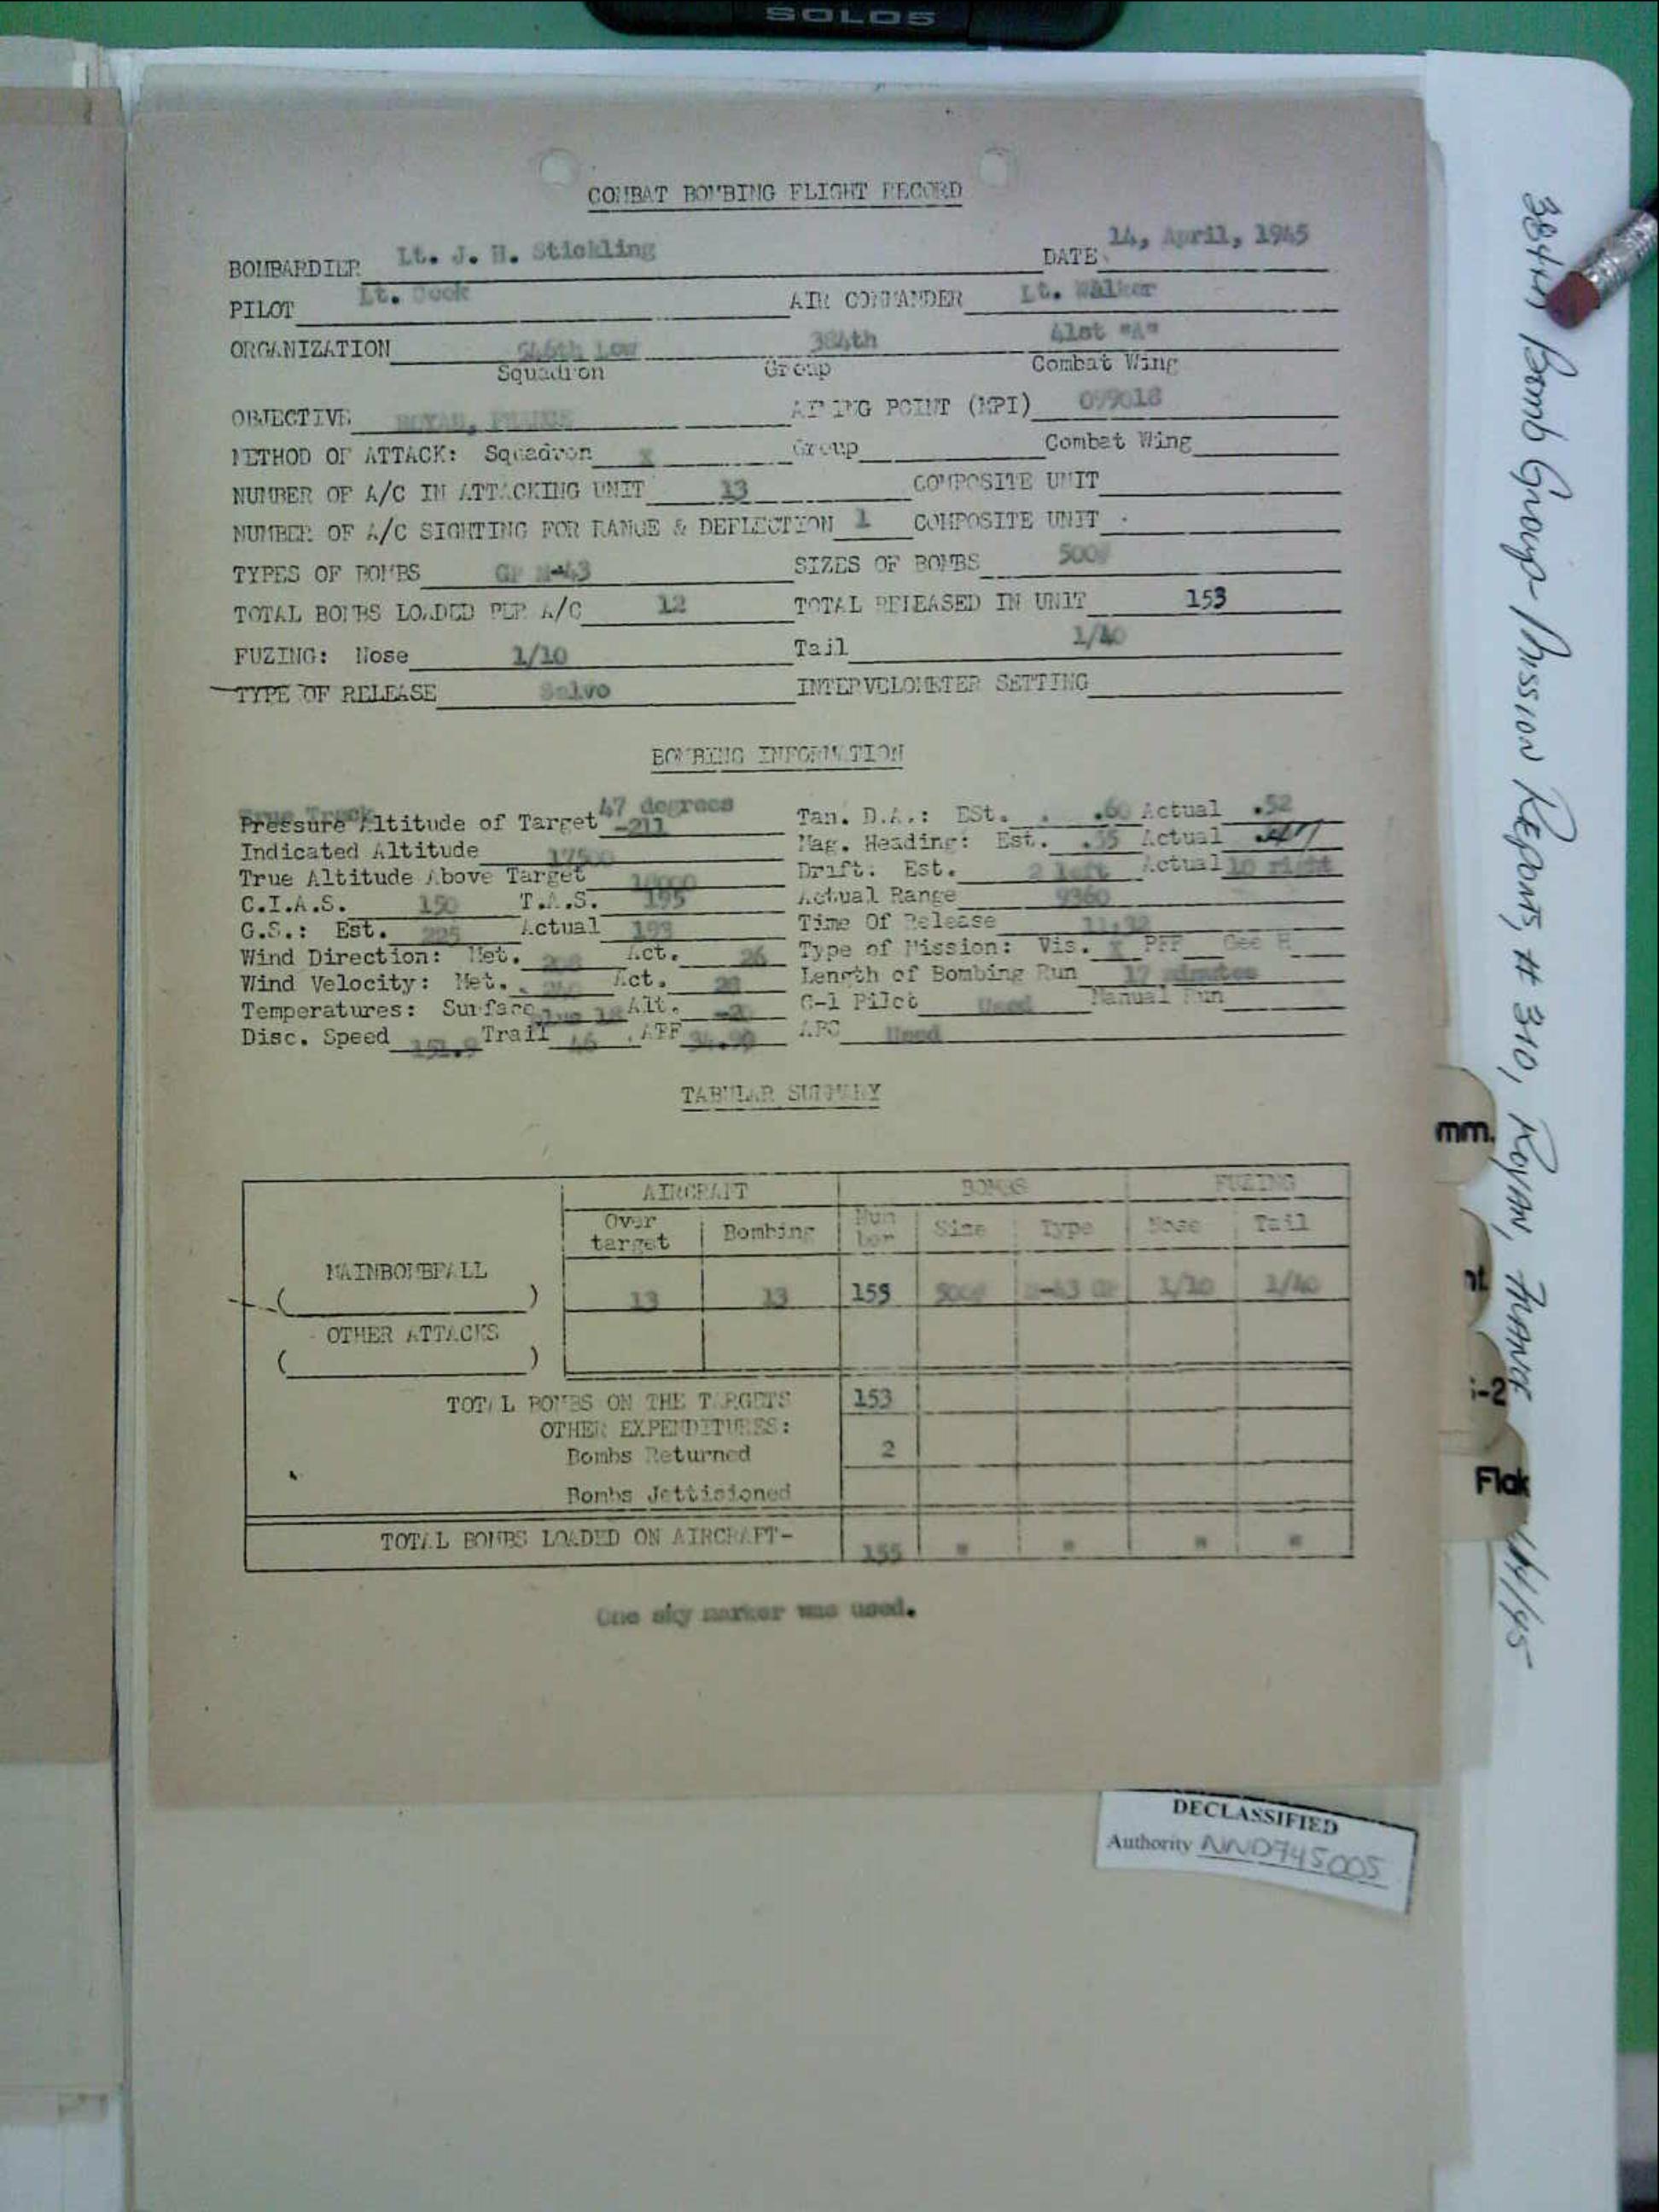 SOLO5
COMBAT BOMBING FLIGHT RECORD
BOMBARDIER Lt. J. H. Stickling DATE 14, April, 1945
PILOT Lt. Cook AIR COMMANDER Lt. Walker
ORGANIZATION 546th Low 384th 41st "A"
Squadron Group Combat Wing
OBJECTIVE ROYAN, FRANCE AIMING POINT (MPI) 099018
METHOD OF ATTACK: Squadron X Group Combat Wing
NUMBER OF A/C IN ATTACKING UNIT 13 COMPOSITE UNIT
NUMBER OF A/C SIGHTING FOR RANGE & DEFLECTION 1 COMPOSITE UNIT
TYPES OF BOMBS GP M-43 SIZES OF BOMBS 500#
TOTAL BOMBS LOADED PER A/C 12 TOTAL RELEASED IN UNIT 153
FUZING: Nose 1/10 Tail 1/40
TYPE OF RELEASE Salvo INTERVELOMETER SETTING
BOMBING INFORMATION
True Track 47 degrees
Pressure Altitude of Target -211 Tan. D.A.: ESt. .60 Actual .52
Indicated Altitude 17500 Mag. Heading: Est. .55 Actual
True Altitude Above Target 18000 Drift: Est. 2 left Actual 10 right
C.I.A.S. 150 T.A.S. 195 Actual Range 9360
G.S.: Est. 225 Actual 199 Time Of Release 11:32
Wind Direction: Met. Act. 26 Type of Mission: Vis. X PFF Gee H
Wind Velocity: Met. Act. 28 Length of Bombing Run 17 minutes
Temperatures: Surface plus 18 Alt. C-1 Pilot Used Manual Run
Disc. Speed 151.9 Trail 46 ATF 34.90 AFC Used
TABULAR SUMMARY
AIRCRAFT BOMBS FUZING
Over target Bombing Number Size Type Nose Tail
MAINBOMBFALL
( ) 13 13 155 500# M-43 GP 1/10 1/40
OTHER ATTACKS
( )
TOTAL BOMBS ON THE TARGETS 153
OTHER EXPENDITURES:
Bombs Returned 2
Bombs Jettisioned
TOTAL BOMBS LOADED ON AIRCRAFT- 155 " " " "
One sky marker was used.
DECLASSIFIED
Authority NND745005
384th Bomb Group Mission Reports, # 310, Royan, France
mm.
nt
i-2
Flak